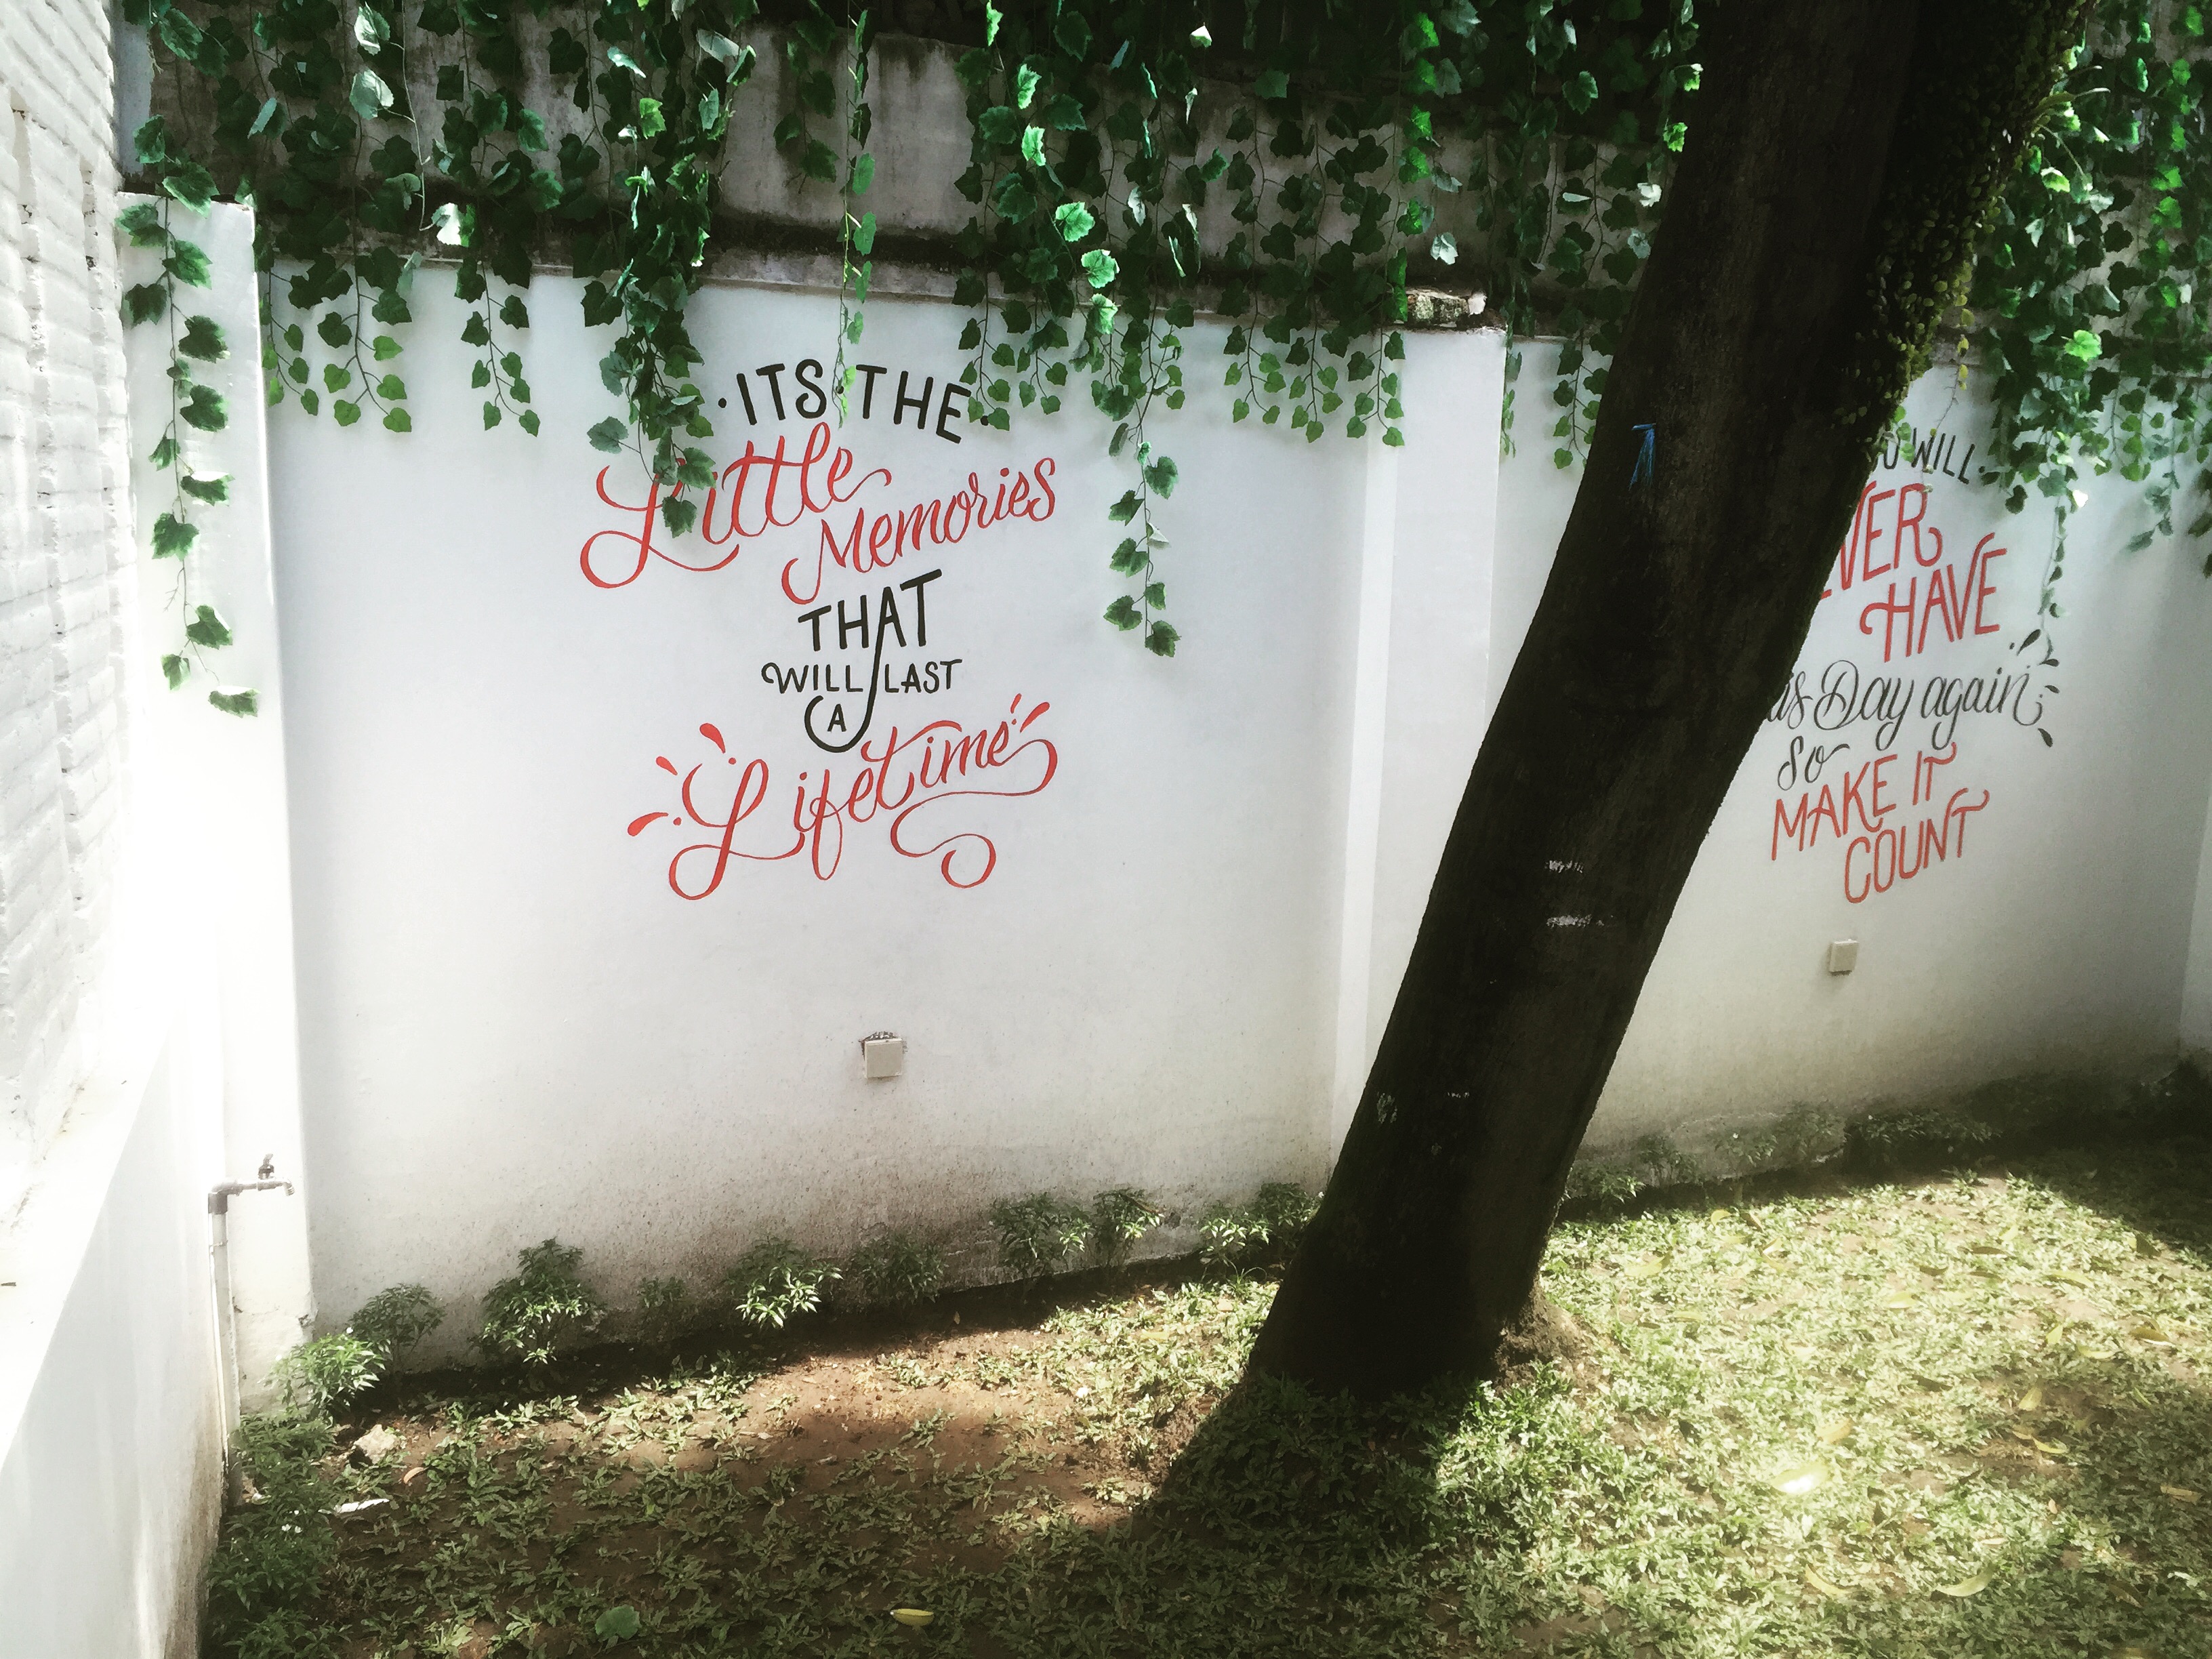 ITS THE
Little
Memories
THAT
WILL LAST
A
Lifetime
WILL
HAVE
Day again
So
MAKE IT
COUNT